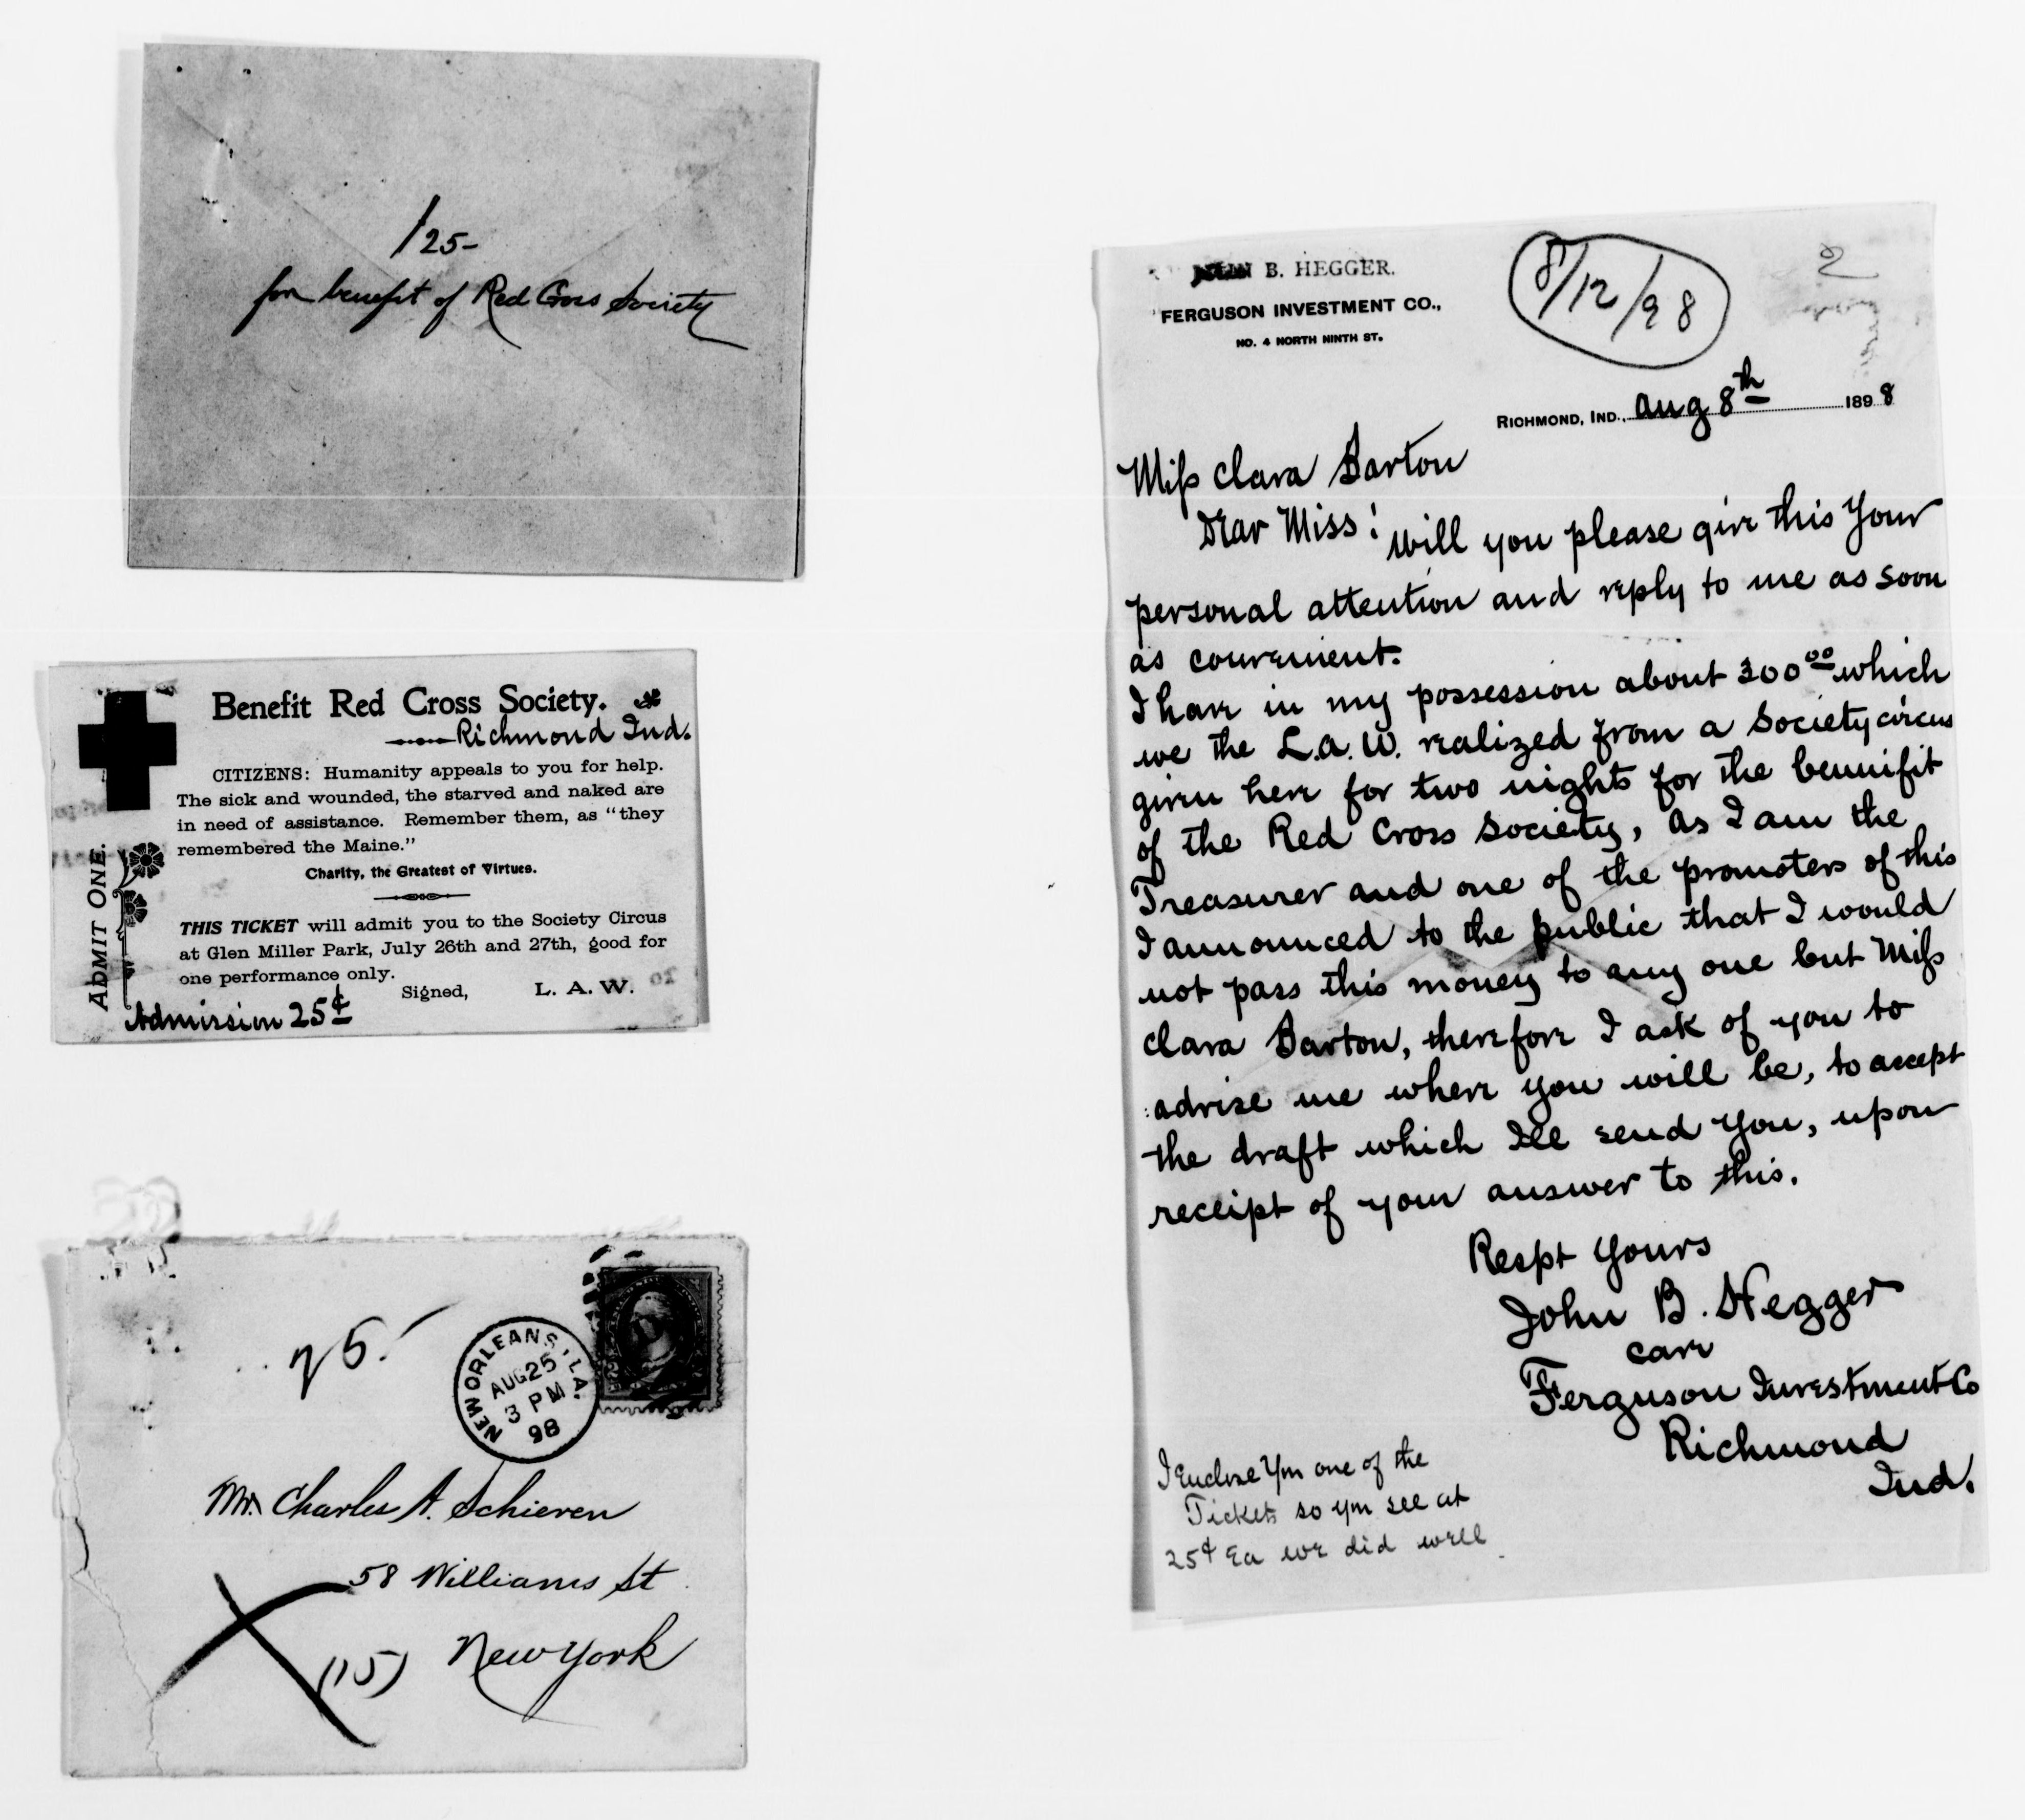 125-
for benefit of Red Cross Society
Benefit Red Cross Society.
Richmond Ind.
CITIZENS: Humanity appeals to you for help.
The sick and wounded, the starved and naked are
in need of assistance. Remember them, as "they
remembered the Maine."
Charity, the Greatest of Virtues.
THIS TICKET will admit you to the Society Circus
at Glen Miller Park, July 26th and 27th, good for
one performance only.
Signed, L. A. W.
ADMIT ONE.
Admission 25¢
25.
NEW ORLEANS, LA.
AUG 25
3 PM
98
Mr. Charles A. Schieren
58 Williams St
(15) New York
B. HEGGER.
FERGUSON INVESTMENT CO.,
NO. 4 NORTH NINTH ST.
8/12/98
2
RICHMOND, IND., Aug 8th 1898
Miss Clara Barton
Dear Miss: Will you please give this Your
personal attention and reply to me as soon
as convenient.
I have in my possession about 300.00 which
we the L.A.W. realized from a Society circus
given here for two nights for the bennifit
of the Red Cross Society, As I am the
Treasurer and one of the promoters of this
I announced to the public that I would
not pass this money to any one but Miss
Clara Barton, therefore I ask of you to
advise me where you will be, to accept
the draft which Ill send You, upon
receipt of your answer to this.
Respt Yours
John B. Hegger
care
Ferguson Investment Co
Richmond
Ind.
I Enclose You one of the
Tickets so you see at
25¢ Ea we did well.